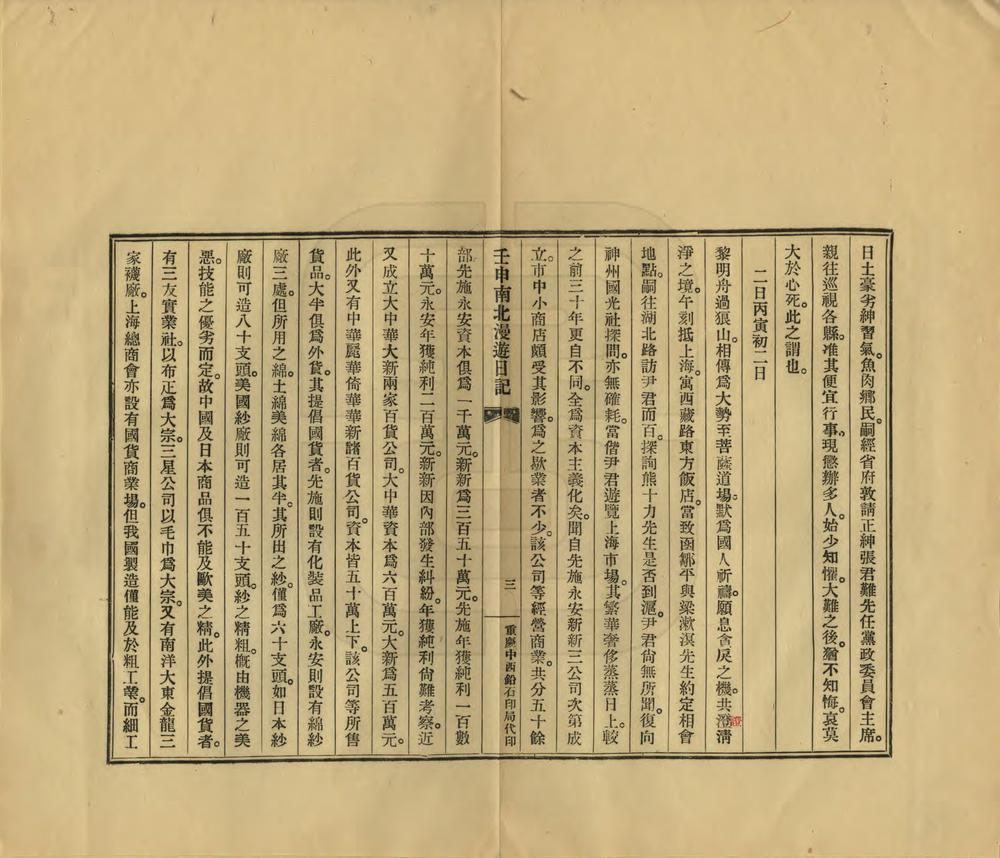 日土豪劣紳習氣。魚肉鄉民。嗣經省府敦請正紳張君難先任黨政委員會主席。
親往巡視各縣。准其便宜行事。現懲辦多人。始少知懼。大難之後。猶不知悔。哀莫
大於心死。此之謂也。
二日丙寅初二日
黎明舟過狼山。相傳爲大勢至菩薩道場。默爲國人祈禱。願息貪戾之機。共澄清
淨之境。午刻抵上海。寓西藏路東方飯店。當致函鄒平與梁漱溟先生約定相會
地點。嗣往湖北路訪尹君而百。探詢熊十力先生是否到滬。尹君尙無所聞。復向
神州國光社探問。亦無確耗。當偕尹君遊覽上海市場。其繁華奢侈蒸蒸日上。較
之前三十年更自不同。全爲資本主義化矣。聞自先施永安新新三公司次第成
立。市中小商店頗受其影響。爲之歇業者不少。該公司等經營商業。共分五十餘
壬申南北漫遊日記
三
重慶中西鉛石印局代印
部。先施永安資本俱爲一千萬元。新新爲三百五十萬元。先施年獲純利一百數
十萬元。永安年獲純利二百萬元。新新因內部發生糾紛。年獲純利尙難考察。近
又成立大中華大新兩家百貨公司。大中華資本爲六百萬元。大新爲五百萬元。
此外又有中華麗華倚華華新諸百貨公司。資本皆五十萬上下。該公司等所售
貨品。大半俱爲外貨。其提倡國貨者。先施則設有化裝品工廠。永安則設有綿紗
廠三處。但所用之綿。土綿美綿各居其半。其所出之紗。僅爲六十支頭。如日本紗
廠則可造八十支頭。美國紗廠則可造一百五十支頭。紗之精粗。槪由機器之美
惡。技能之優劣而定。故中國及日本商品俱不能及歐美之精。此外提倡國貨者。
有三友實業社。以布疋爲大宗。三星公司以毛巾爲大宗。又有南洋大東金龍三
家襪廠。上海總商會亦設有國貨商業場。但我國製造僅能及於粗工業。而細工